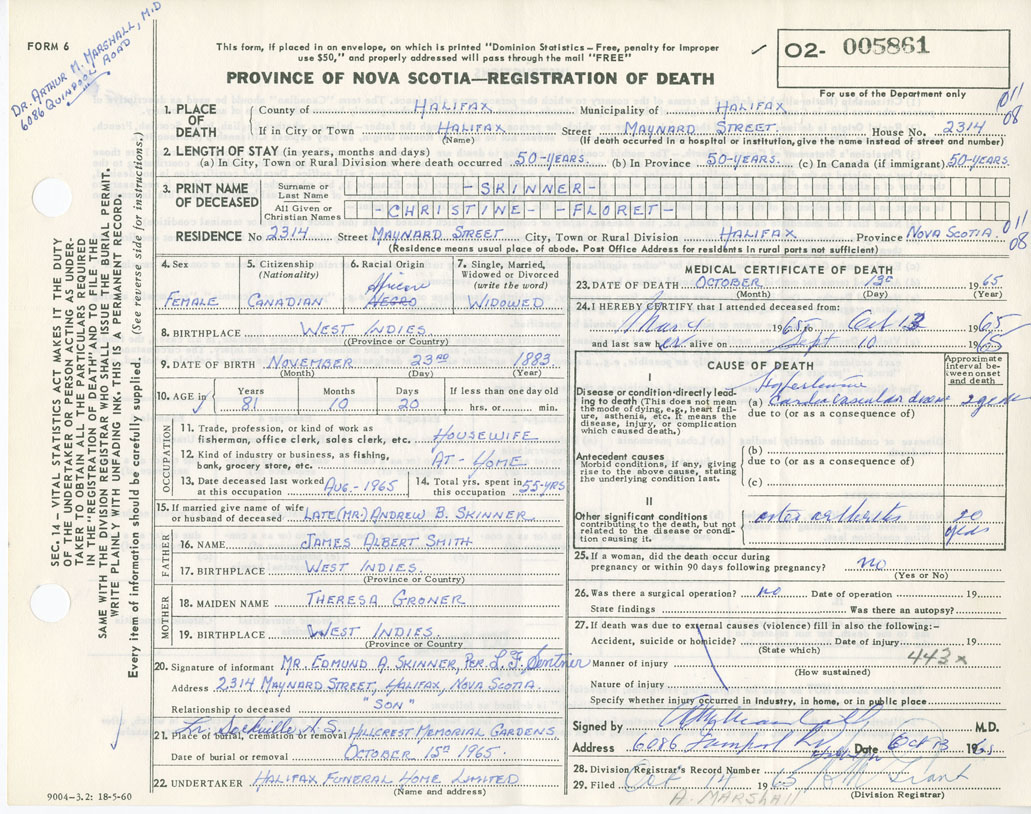 DR. ARTHUR M. MARSHALL, M.D
6086 QUINPOOL ROAD
FORM 6
This form, if placed in an envelope, on which is printed "Dominion Statistics – Free, penalty for improper
use $50," and properly addressed will pass through the mail "FREE"
PROVINCE OF NOVA SCOTIA—REGISTRATION OF DEATH
02- 005861
For use of the Department only
SEC. 14 – VITAL STATISTICS ACT MAKES IT THE DUTY
OF THE UNDERTAKER OR PERSON ACTING AS UNDER-
TAKER TO OBTAIN ALL THE PARTICULARS REQUIRED
IN THE "REGISTRATION OF DEATH" AND TO FILE THE
SAME WITH THE DIVISION REGISTRAR WHO SHALL ISSUE THE BURIAL PERMIT.
WRITE PLAINLY WITH UNFADING INK. THIS IS A PERMANENT RECORD.
Every item of information should be carefully supplied. (See reverse side for instructions.)
1. PLACE OF DEATH
County of HALIFAX Municipality of HALIFAX 011 08
If in City or Town HALIFAX Street MAYNARD STREET. House No. 2314
(Name) (If death occurred in a hospital or institution, give the name instead of street and number)
2. LENGTH OF STAY (in years, months and days)
(a) In City, Town or Rural Division where death occurred 50-YEARS. (b) In Province 50-YEARS. (c) In Canada (if immigrant) 50-YEARS.
3. PRINT NAME OF DECEASED
Surname or Last Name -SKINNER-
All Given or Christian Names -CHRISTINE- -FLORET-
RESIDENCE No 2314 Street MAYNARD STREET City, Town or Rural Division HALIFAX Province NOVA SCOTIA 011 08
(Residence means usual place of abode. Post Office Address for residents in rural parts not sufficient)
4. Sex FEMALE
5. Citizenship (Nationality) CANADIAN
6. Racial Origin African NEGRO
7. Single, Married, Widowed or Divorced (write the word) WIDOWED
8. BIRTHPLACE WEST INDIES
(Province or Country)
9. DATE OF BIRTH NOVEMBER 23RD 1883
(Month) (Day) (Year)
10. AGE in Years 81 Months 10 Days 20 If less than one day old hrs. or min.
OCCUPATION
11. Trade, profession or kind of work as
fisherman, office clerk, sales clerk, etc. HOUSEWIFE
12. Kind of industry or business, as fishing,
bank, grocery store, etc. AT-HOME
13. Date deceased last worked at this occupation AUG-1965
14. Total yrs. spent in this occupation 55-YRS
15. If married give name of wife
or husband of deceased LATE (MR.) ANDREW B. SKINNER
FATHER
16. NAME JAMES ALBERT SMITH
17. BIRTHPLACE WEST INDIES.
(Province or Country)
MOTHER
18. MAIDEN NAME THERESA GRONER
19. BIRTHPLACE WEST INDIES.
(Province or Country)
20. Signature of informant MR. EDMUND A. SKINNER, PER L.F.
Address 2314 MAYNARD STREET, HALIFAX, NOVA SCOTIA.
Relationship to deceased "SON"
Lr. Sackville N.S.
21. Place of burial, cremation or removal HILLCREST MEMORIAL GARDENS
Date of burial or removal OCTOBER 15TH 1965.
22. UNDERTAKER HALIFAX FUNERAL HOME LIMITED
(Name and address)
9004-3.2: 18-5-60
MEDICAL CERTIFICATE OF DEATH
23. DATE OF DEATH OCTOBER 13 1965
(Month) (Day) (Year)
24. I HEREBY CERTIFY that I attended deceased from:
1965 to Oct 13 1965
and last saw her alive on Sept 10 1965
CAUSE OF DEATH
Approximate interval between onset and death
I
Disease or condition directly lead-
ing to death (This does not mean
the mode of dying, e.g., heart fail-
ure, asthenia, etc. It means the
disease, injury, or complication
which caused death.)
Hypertensive
(a) Cardiovascular disease
due to (or as a consequence of)
Antecedent causes
Morbid conditions, if any, giving
rise to the above cause, stating
the underlying condition last.
(b)
due to (or as a consequence of)
(c)
II
Other significant conditions
contributing to the death, but not
related to the disease or condi-
tion causing it.
osteo arthritis 20
25. If a woman, did the death occur during
pregnancy or within 90 days following pregnancy? no
(Yes or No)
26. Was there a surgical operation? no Date of operation 19
State findings Was there an autopsy?
27. If death was due to external causes (violence) fill in also the following:–
Accident, suicide or homicide? Date of injury 19
(State which) 443x
Manner of injury
(How sustained)
Nature of injury
Specify whether injury occurred in Industry, in home, or in public place
Signed by M.D.
Address 6086 Date Oct 13 196
28. Division Registrar's Record Number
29. Filed Oct 14 1965 Grant
A. MARSHALL (Division Registrar)